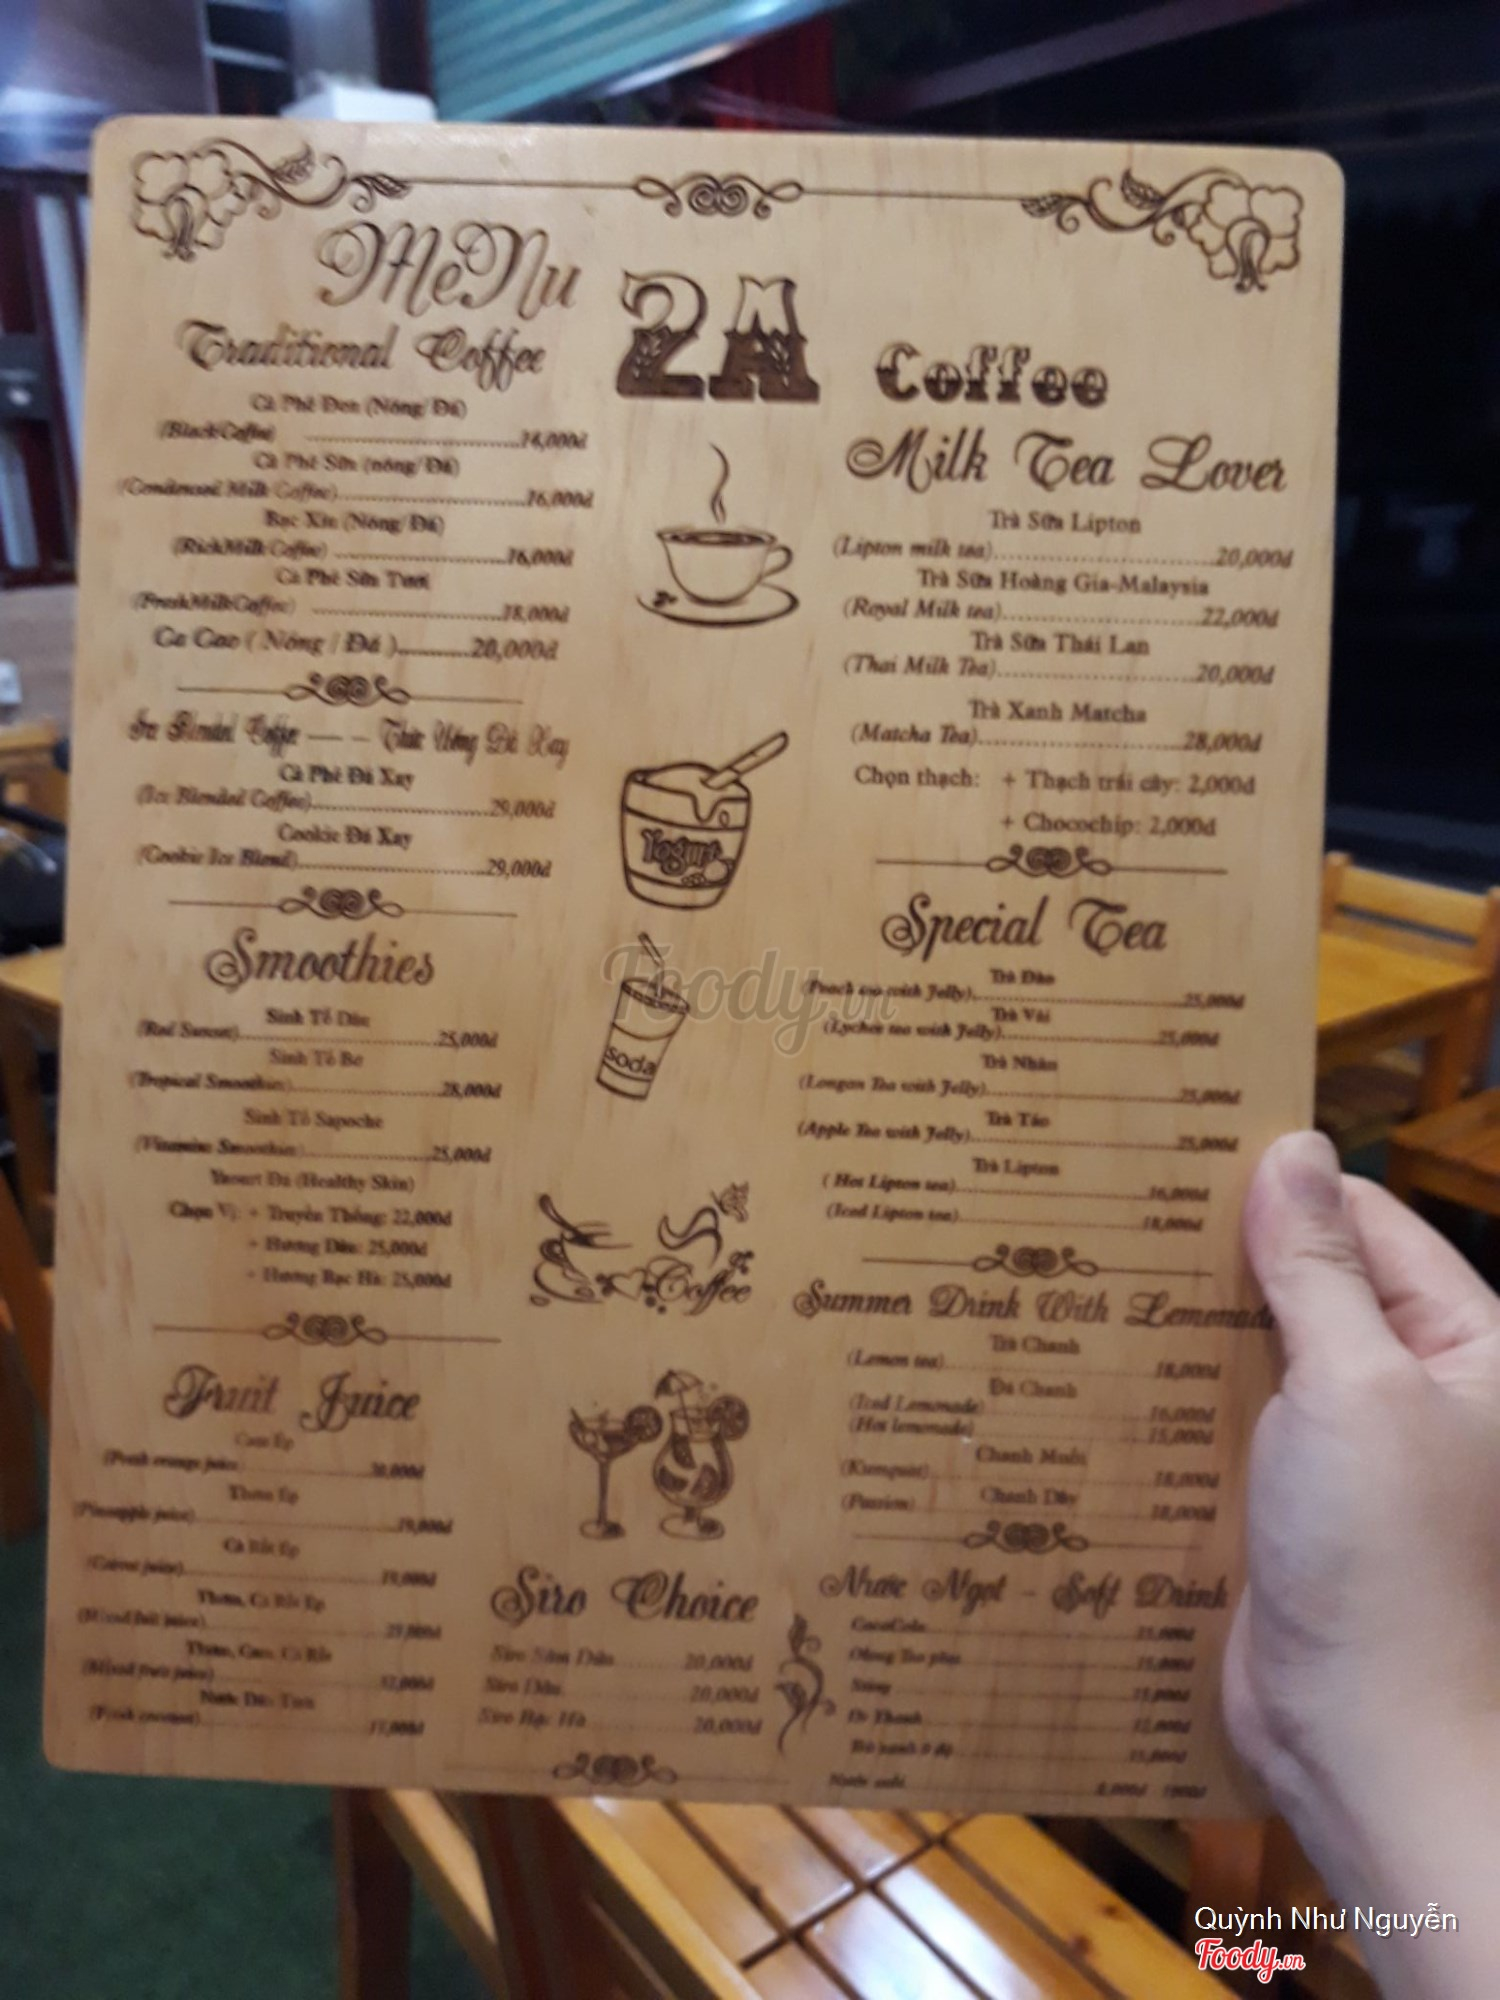 MeNu
2A
Coffee
Traditional Coffee
Cà Phê Đen (Nóng/Đá)
(Black Coffee) ..........14,000đ
Cà Phê Sữa (nóng/Đá)
(Condensed Milk Coffee)..........16,000đ
Bạc Xỉu (Nóng/Đá)
(RichMilk Coffee) ..........16,000đ
Cà Phê Sữa Tươi
(FreshMilkCoffee) ..........18,000đ
Ca Cao ( Nóng / Đá )..........20,000đ
Ice Blended Coffee —– – Thức Uống Đá Xay
Cà Phê Đá Xay
(Ice Blended Coffee)..........29,000đ
Cookie Đá Xay
(Cookie Ice Blend)..........29,000đ
Smoothies
Sinh Tố Dâu
(Red Sunset)..........25,000đ
Sinh Tố Bơ
(Tropical Smoothies)..........28,000đ
Sinh Tố Sapoche
(Vitamins Smoothies)..........25,000đ
Yaourt Đá (Healthy Skin)
Chọn Vị: + Truyền Thống: 22,000đ
+ Hương Dâu: 25,000đ
+ Hương Bạc Hà: 25,000đ
Fruit Juice
Cam Ép
(Fresh orange juice)
Thơm Ép
(Pineapple juice)
Cà Rốt Ép
(Carrot juice)
Thơm, Cà Rốt Ép
Thơm, Cam, Cà Rốt
(Mixed fruit juice)
Nước Dừa Tươi
(Fresh coconut)
Yogurt
soda
Coffee
Siro Choice
Siro Dâu..........20,000đ
Siro Bạc Hà..........20,000đ
Milk Tea Lover
Trà Sữa Lipton
(Lipton milk tea)..........20,000đ
Trà Sữa Hoàng Gia-Malaysia
(Royal Milk tea)..........22,000đ
Trà Sữa Thái Lan
(Thai Milk Tea)..........20,000đ
Trà Xanh Matcha
(Matcha Tea)..........28,000đ
Chọn thạch: + Thạch trái cây: 2,000đ
+ Chocochip: 2,000đ
Special Tea
Trà Đào
(Peach tea with Jelly)..........25,000đ
Trà Vải
(Lychee tea with Jelly)..........25,000đ
Trà Nhãn
(Longan Tea with Jelly)..........25,000đ
Trà Táo
(Apple Tea with Jelly)..........25,000đ
Trà Lipton
( Hot Lipton tea)..........16,000đ
(Iced Lipton tea)..........18,000đ
Summer Drink With Lemonade
Trà Chanh
(Lemon tea)..........18,000đ
Đá Chanh
(Iced Lemonade)..........16,000đ
(Hot lemonade)..........15,000đ
Chanh Muối
(Kumquat)..........18,000đ
Chanh Dây
(Passion)..........18,000đ
Nước Ngọt - Soft Drink
CocaCola
Sting
Dr Thanh
Trà xanh 0 độ
Nước suối
Foody.vn
Quỳnh Như Nguyễn
Foody.vn